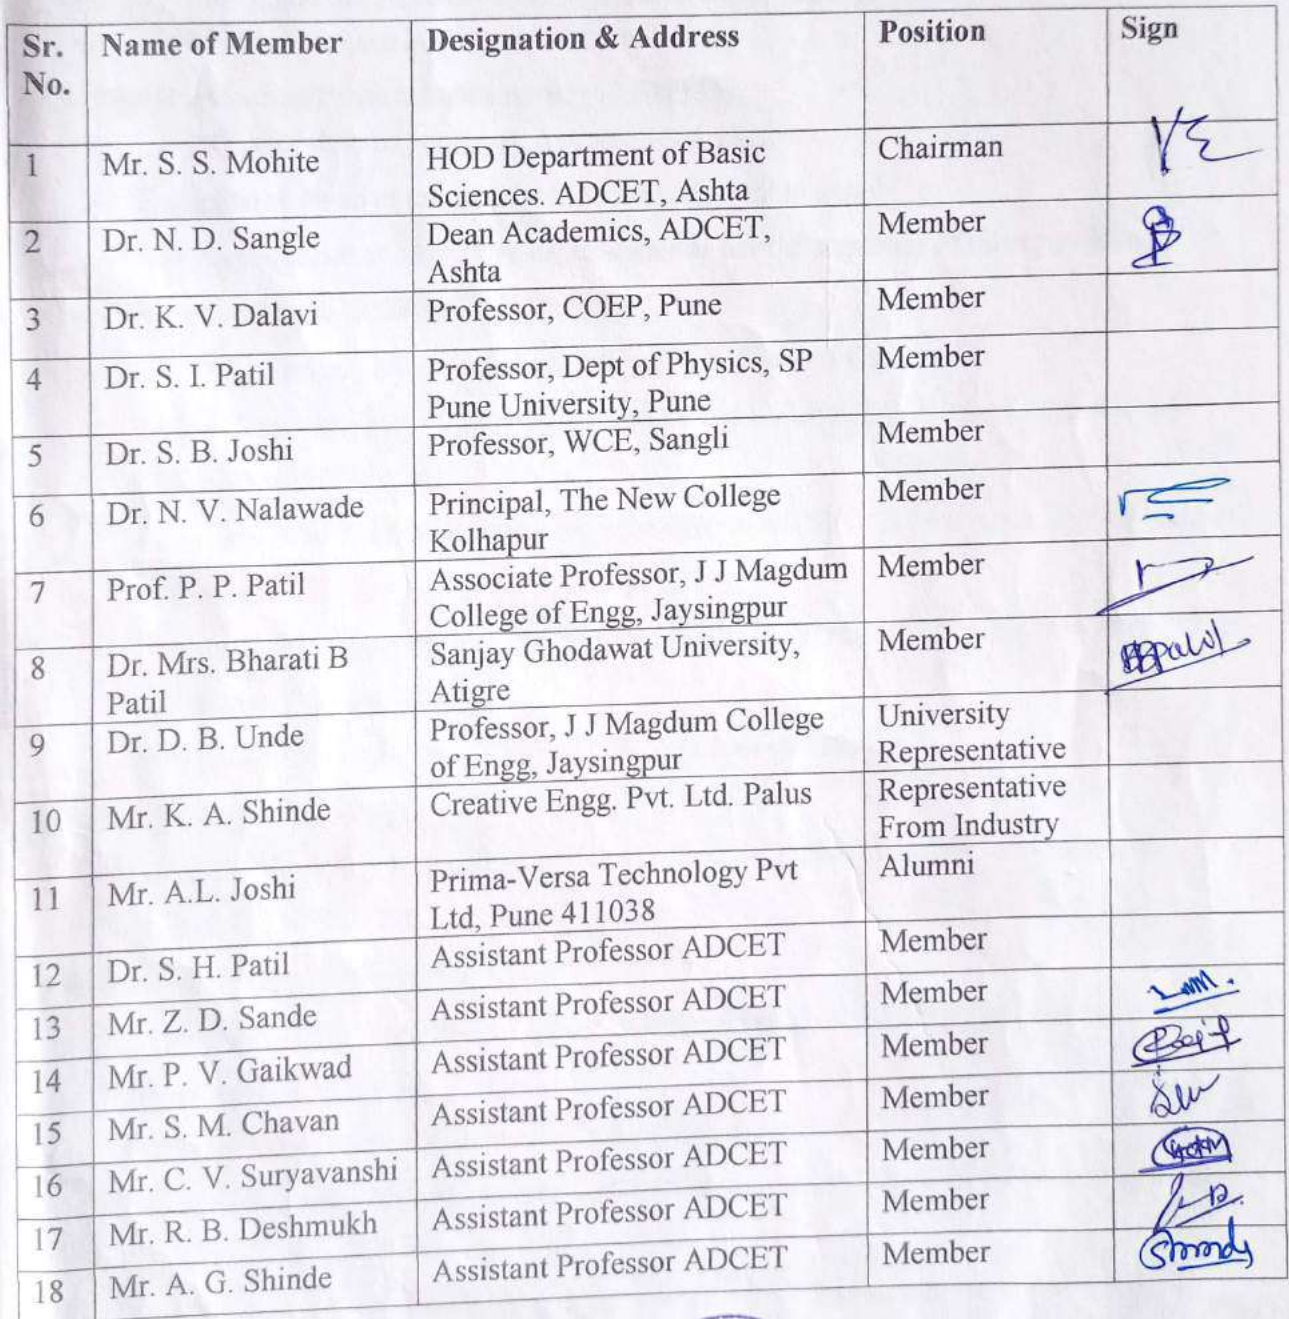 Sr. Name of Member Designation & Address Position Sign
No.
1 Mr. S. S. Mohite HOD Department of Basic Chairman
Sciences. ADCET, Ashta
2 Dr. N. D. Sangle Dean Academics, ADCET, Member
Ashta
3 Dr. K. V. Dalavi Professor, COEP, Pune Member
4 Dr. S. I. Patil Professor, Dept of Physics, SP Member
Pune University, Pune
5 Dr. S. B. Joshi Professor, WCE, Sangli Member
6 Dr. N. V. Nalawade Principal, The New College Member
Kolhapur
7 Prof. P. P. Patil Associate Professor, J J Magdum Member
College of Engg, Jaysingpur
8 Dr. Mrs. Bharati B Sanjay Ghodawat University, Member
Patil Atigre
9 Dr. D. B. Unde Professor, J J Magdum College University
of Engg, Jaysingpur Representative
10 Mr. K. A. Shinde Creative Engg. Pvt. Ltd. Palus Representative
From Industry
11 Mr. A.L. Joshi Prima-Versa Technology Pvt Alumni
Ltd, Pune 411038
12 Dr. S. H. Patil Assistant Professor ADCET Member
13 Mr. Z. D. Sande Assistant Professor ADCET Member
14 Mr. P. V. Gaikwad Assistant Professor ADCET Member
15 Mr. S. M. Chavan Assistant Professor ADCET Member
16 Mr. C. V. Suryavanshi Assistant Professor ADCET Member
17 Mr. R. B. Deshmukh Assistant Professor ADCET Member
18 Mr. A. G. Shinde Assistant Professor ADCET Member